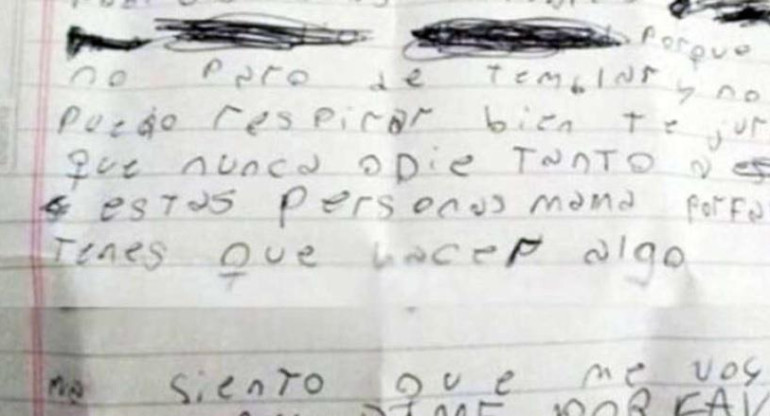 porque
no paro de temblar y no
puedo respirar bien te jur
que nunca odie tanto a
estas personas mama porfa
tenes que hacer algo
siento que me voy
POR FAV